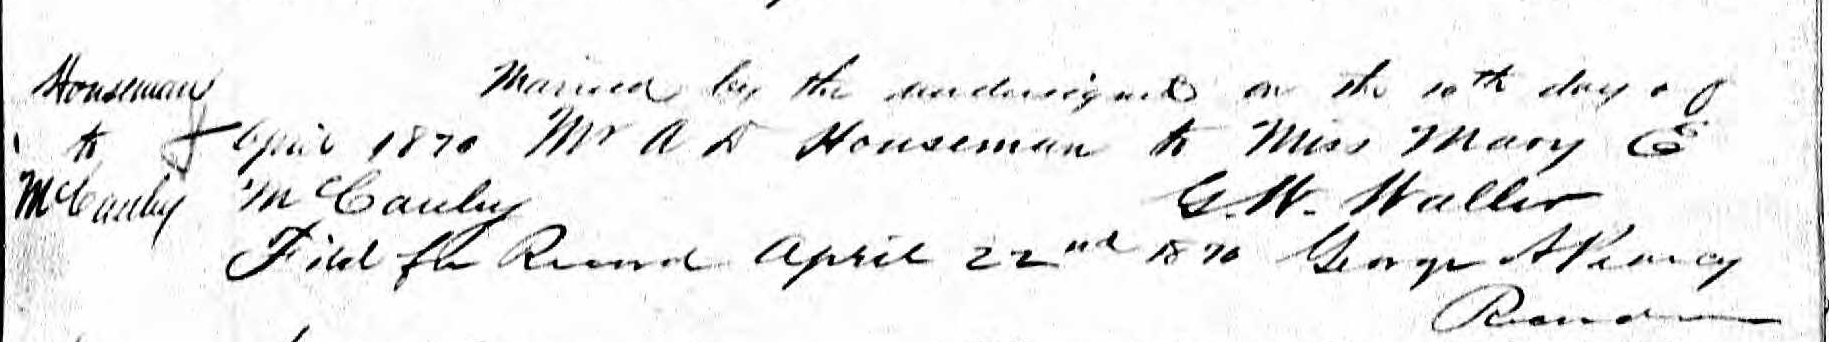 Houseman
to
McCauley
Married by the undersigned on the 10th day of
April 1870 Mr A D Houseman to Miss Mary E
McCauley
G. W. Waller
Filed for Record April 22nd 1870 George A Pearcy
Recorder